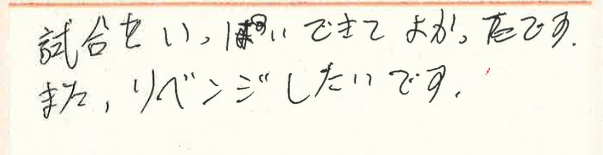 試合をいっぱいできてよかったです.
また,リベンジしたいです.